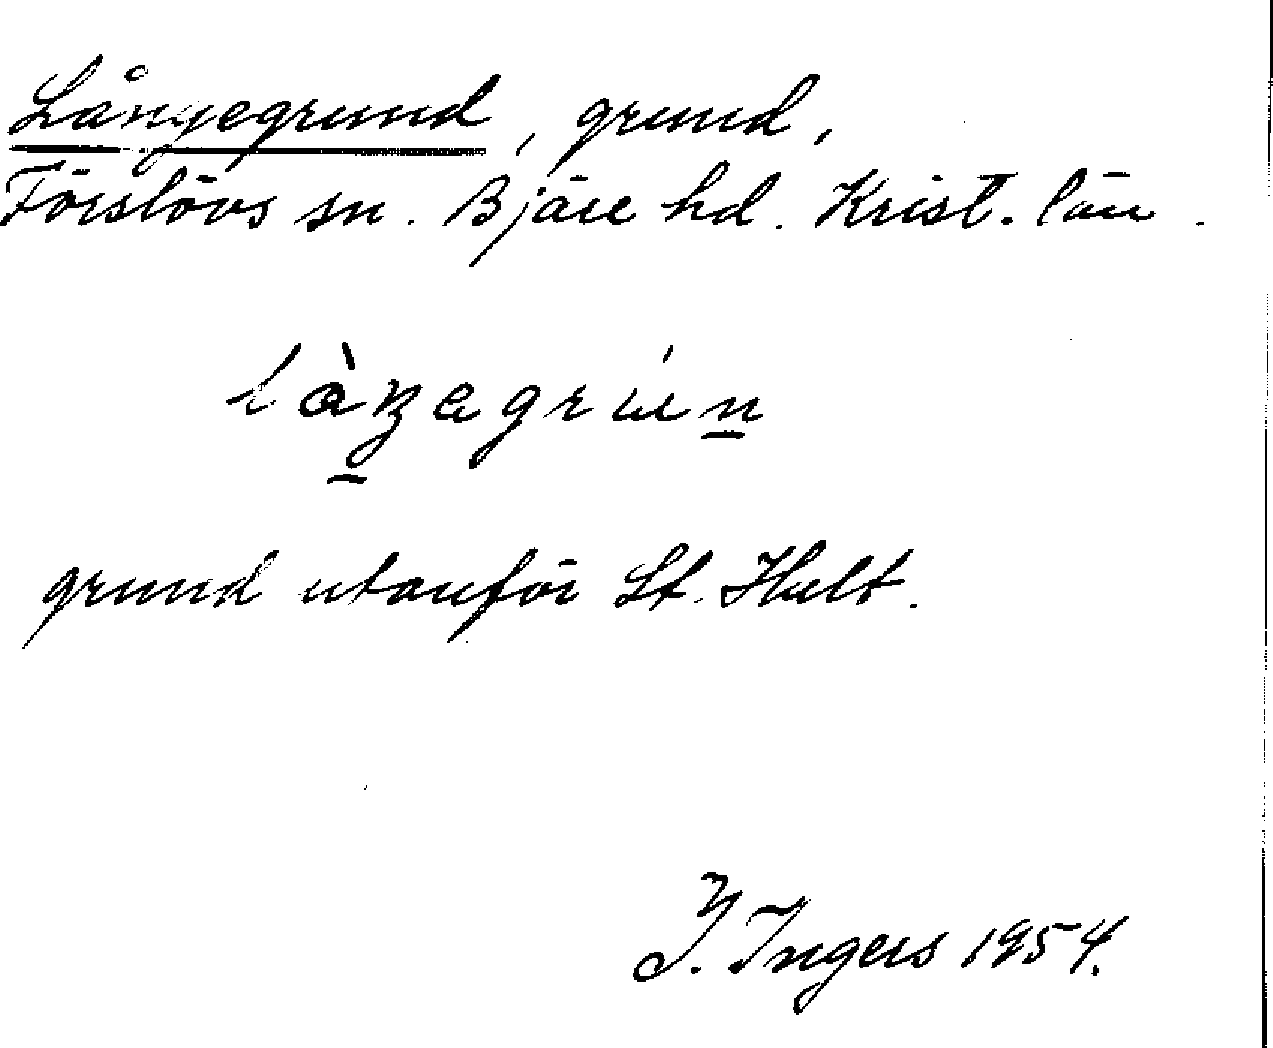 Långegrund, grund,
Förslövs sn. Bjäre hd. Krist. län.
làŋagrún
grund utanför St. Hult.
I. Ingers 1954.